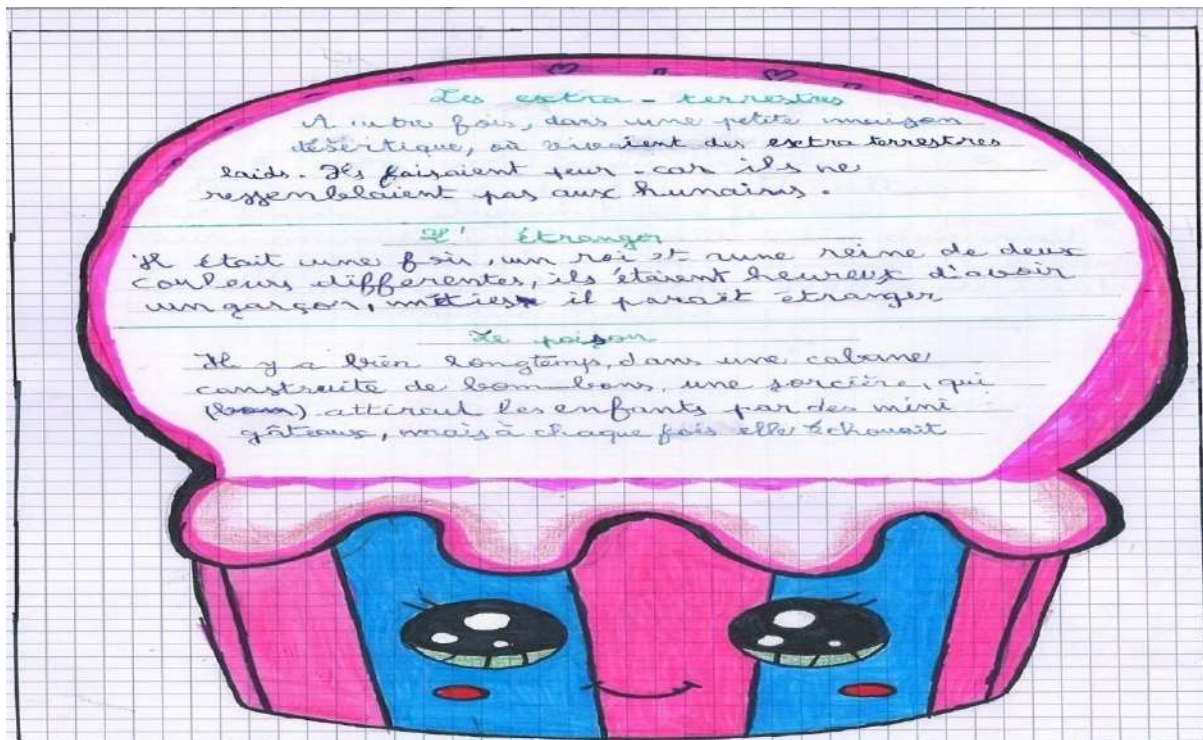 Les extra - terrestres
Autre fois, dans une petite maison
désertique, où vivaient des extra terrestres
laids. Ils faisaient peur. car ils ne
ressemblaient pas aux humains.
L' étranger
Il était une fois, un roi et une reine de deux
couleurs différentes, ils étaient heureux d'avoir
un garçon, méties il paraît étranger
Le poison
Il y a bien longtemps, dans une cabane
construite de bom-bons, une sorcière, qui
(bom) attirait les enfants par des mini
gâteaux, mais à chaque fois elle échouait